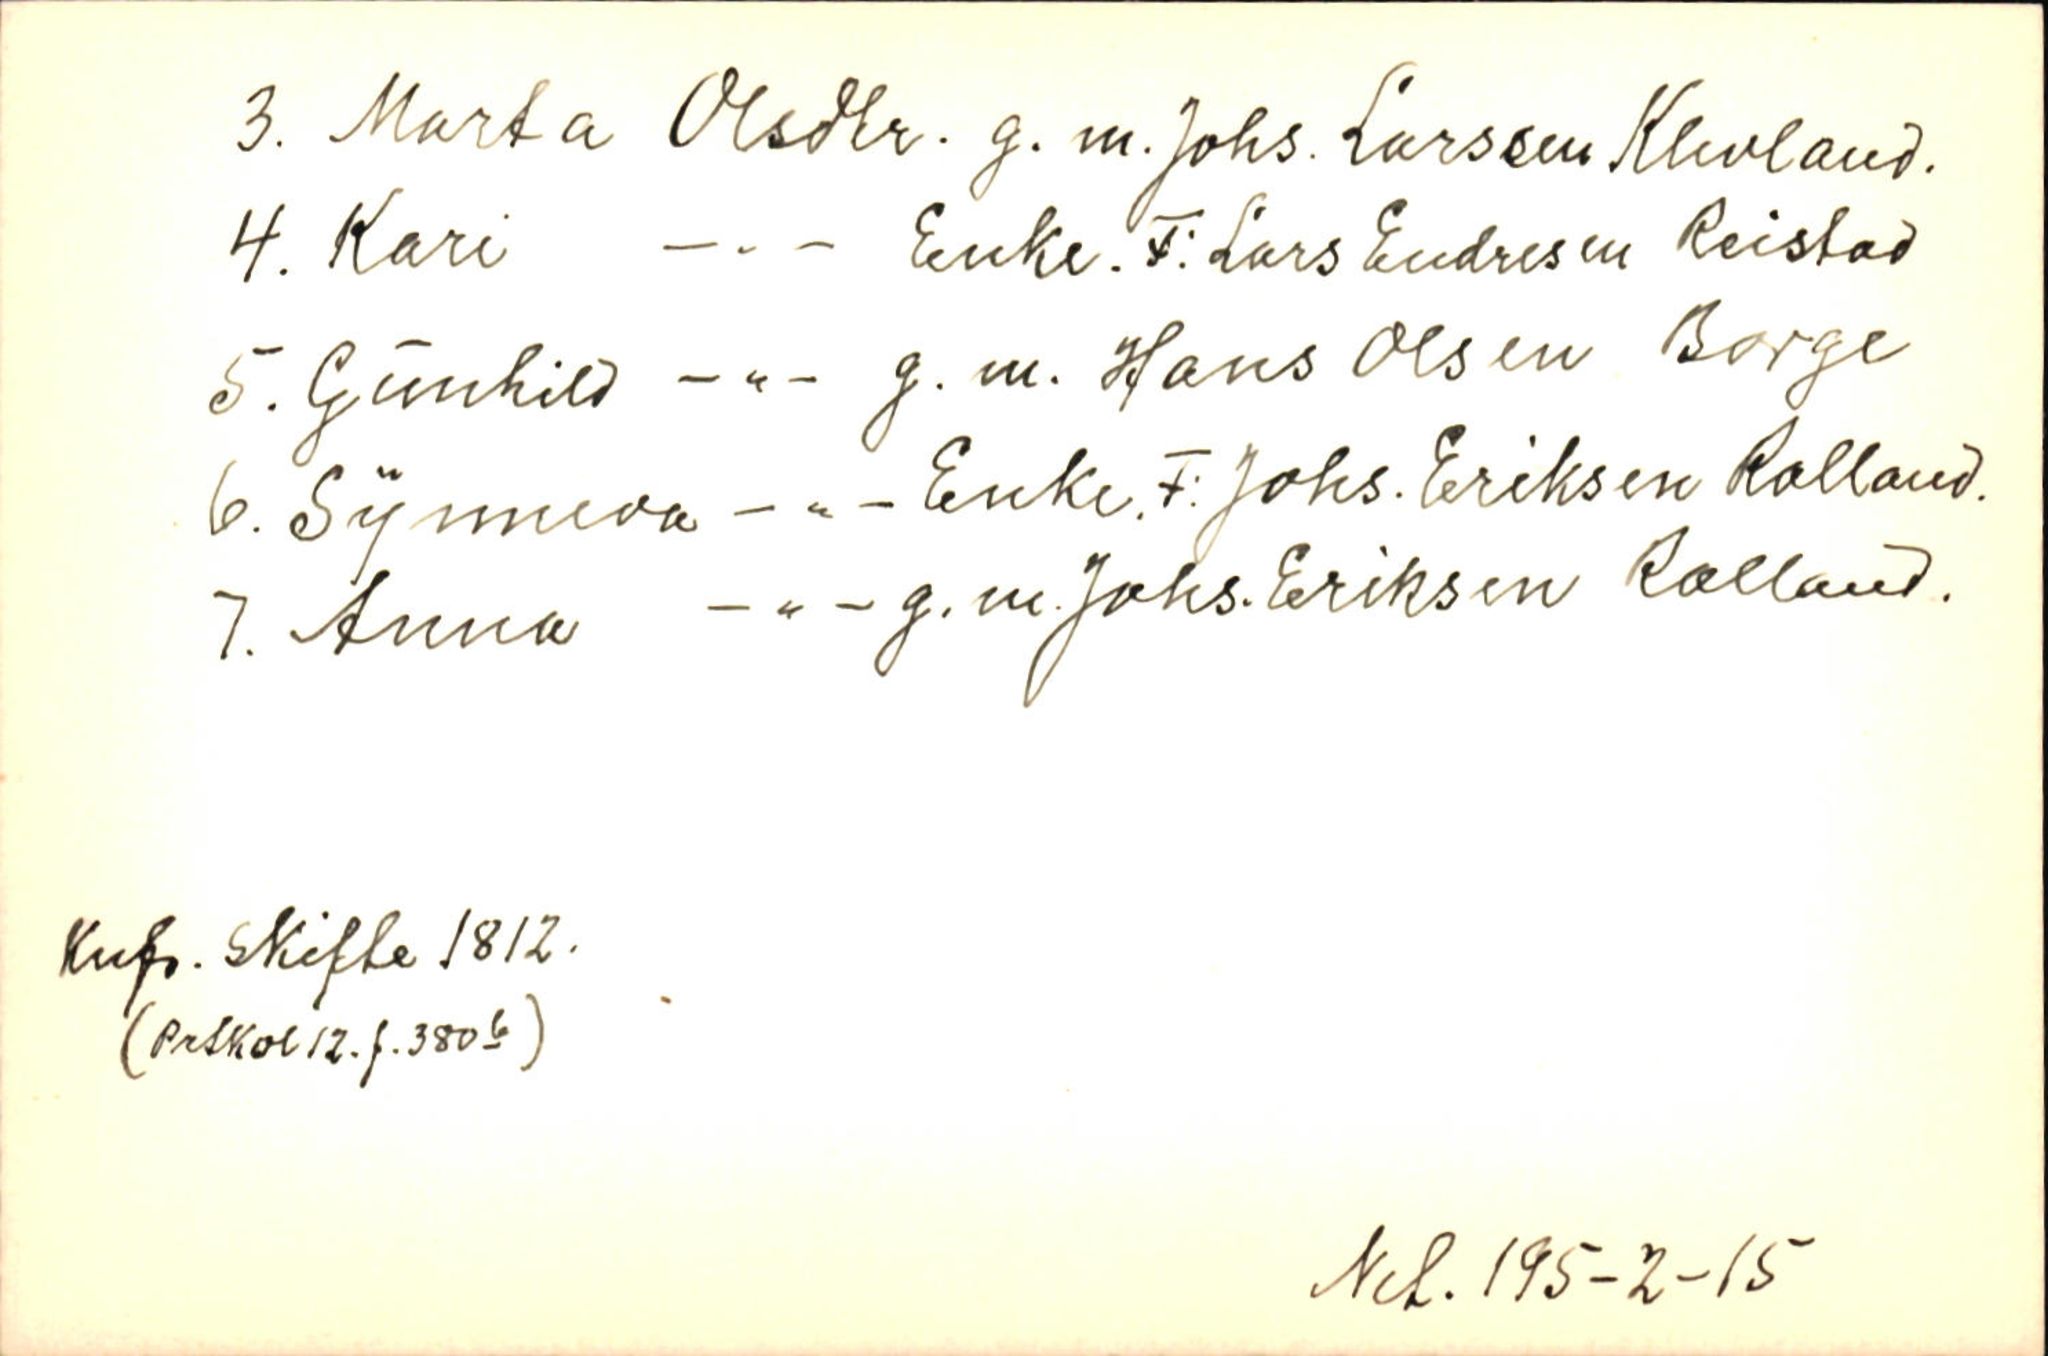 3. Marta Olsdtr. g. m. Johs. Larssen Klevland.
4. Kari - " - Enke. F: Lars Endresen Reistad
5. Gunhild - " - g. m. Hans Olsen Borge
6. Synneva - " - Enke, F: Johs. Eriksen Rolland.
7. Anna - " - g. m. Johs. Eriksen Rolland.
Knfr. Skifte 1812.
(Prtkol 12. f. 380 b)
Nel. 195-2-15